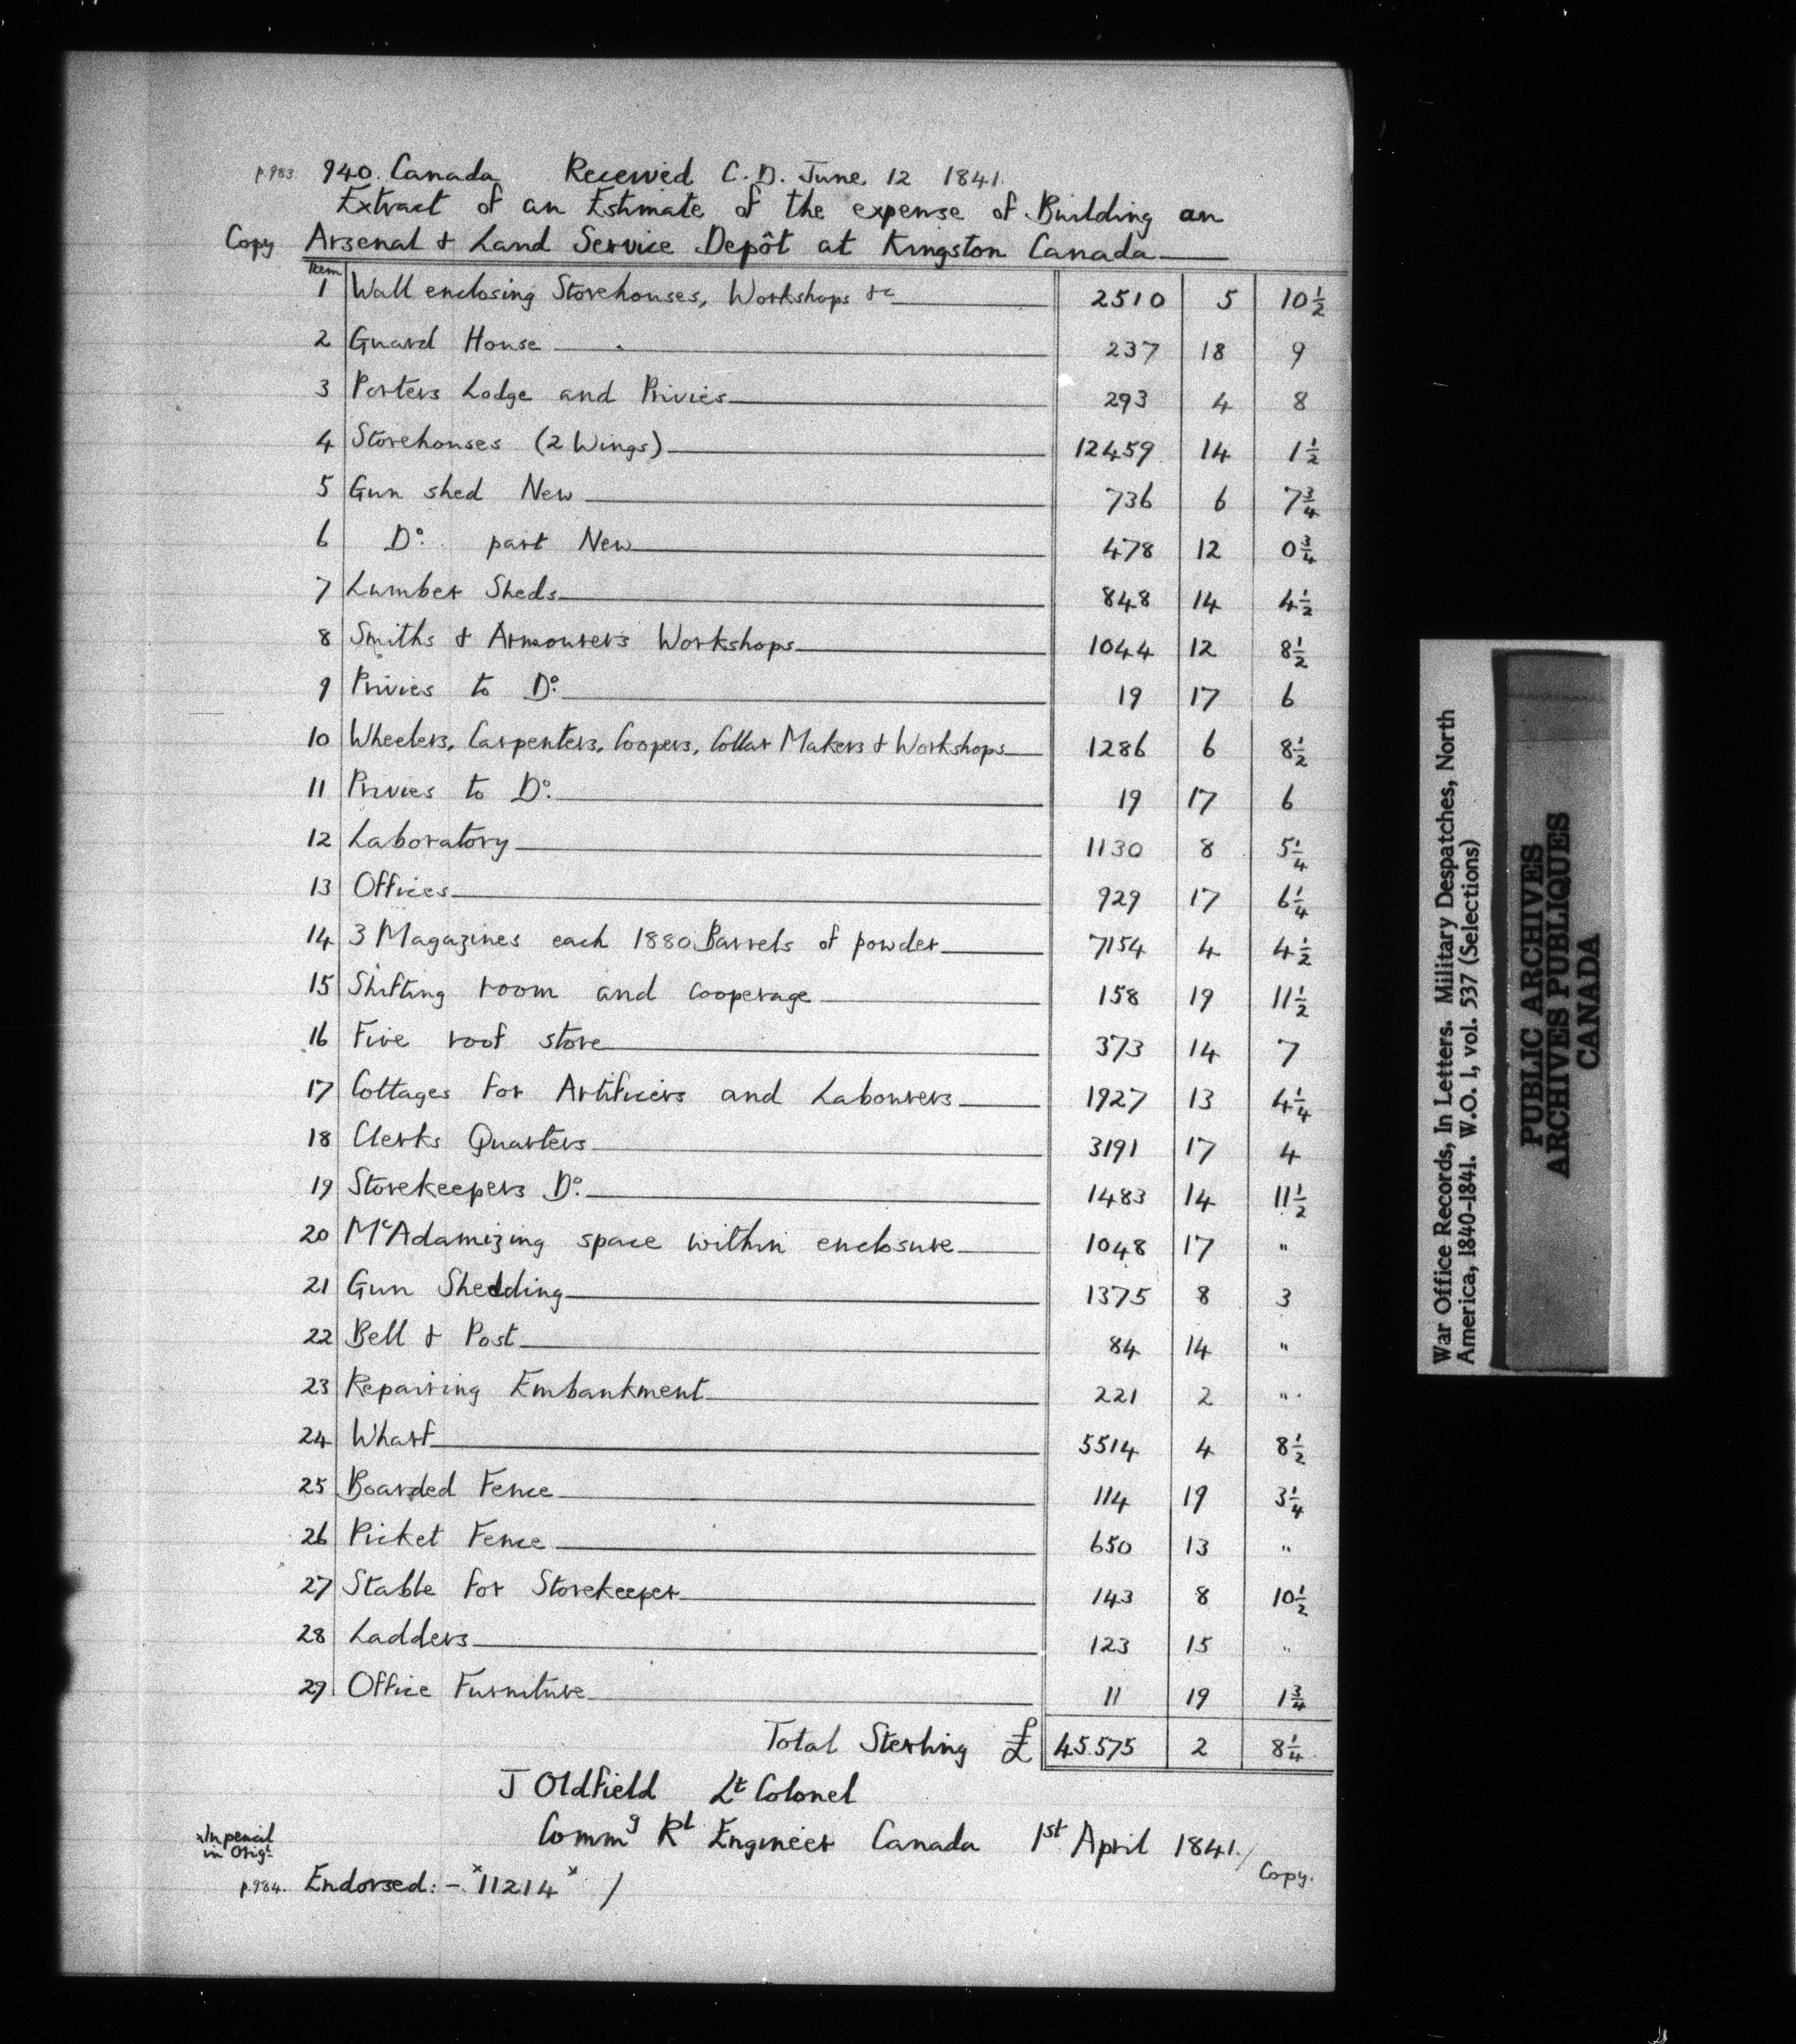 p.983 940. Canada Received C.D. June 12 1841.
Extract of an Estimate of the expense of Building an
Copy Arsenal & Land Service Depôt at Kingston Canada
Item
1 Wall enclosing Storehouses, Workshops &c 2510 5 10½
2 Guard House 237 18 9
3 Porters Lodge and Privies 293 4 8
4 Storehouses (2 Wings) 12459 14 1½
5 Gun shed New 736 6 7¾
6 Do. part New 478 12 0¾
7 Lumber Sheds 848 14 4½
8 Smiths & Armourers Workshops 1044 12 8½
9 Privies to Do. 19 17 6
10 Wheelers, Carpenters, Coopers, Collar Makers & Workshops 1286 6 8½
11 Privies to Do. 19 17 6
12 Laboratory 1130 8 5¼
13 Offices 929 17 6¼
14 3 Magazines each 1880 Barrels of powder 7154 4 4½
15 Shifting room and Cooperage 158 19 11½
16 Fire roof store 373 14 7
17 Cottages for Artificers and Labourers 1927 13 4¼
18 Clerks Quarters 3191 17 4
19 Storekeepers Do. 1483 14 11½
20 McAdamizing space within enclosure 1048 17 "
21 Gun Shedding 1375 8 3
22 Bell & Post 84 14 "
23 Repairing Embankment 221 2 "
24 Wharf 5514 4 8½
25 Boarded Fence 114 19 3¼
26 Picket Fence 650 13 "
27 Stable for Storekeeper 143 8 10½
28 Ladders 123 15 "
29 Office Furniture 11 19 1¾
Total Sterling £ 45.575 2 8¼
J Oldfield Lt Colonel
Commg Rl Engineer Canada 1st April 1841./
Copy.
xIn pencil
in Origl.
p.984. Endorsed: - x11214x /
War Office Records, In Letters. Military Despatches, North
America, 1840-1841. W.O. 1, vol. 537 (Selections)
PUBLIC ARCHIVES
ARCHIVES PUBLIQUES
CANADA